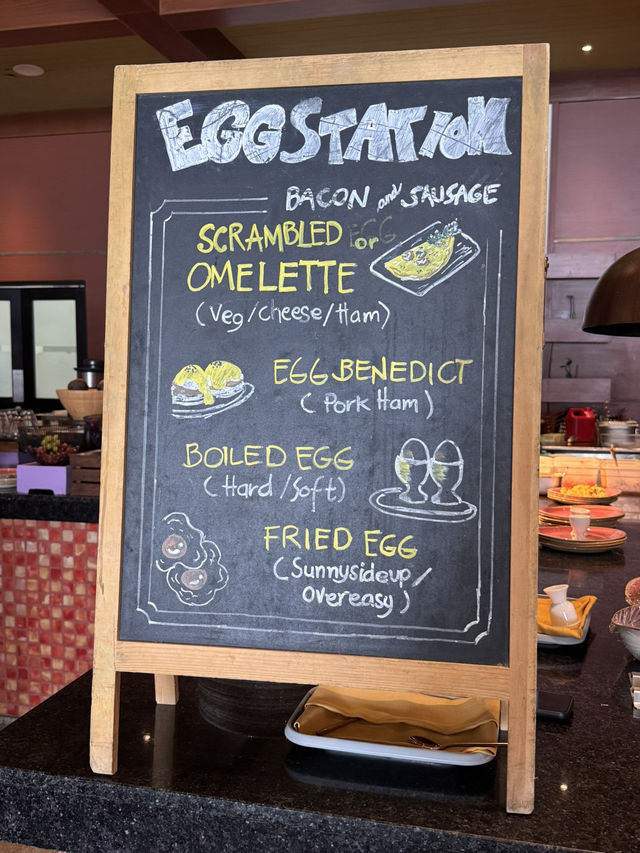 EGG STATION
BACON and SAUSAGE
SCRAMBLED EGG
or
OMELETTE
(Veg/Cheese/Ham)
EGG BENEDICT
(Pork Ham)
BOILED EGG
(Hard/Soft)
FRIED EGG
(Sunnysideup/
Overeasy)